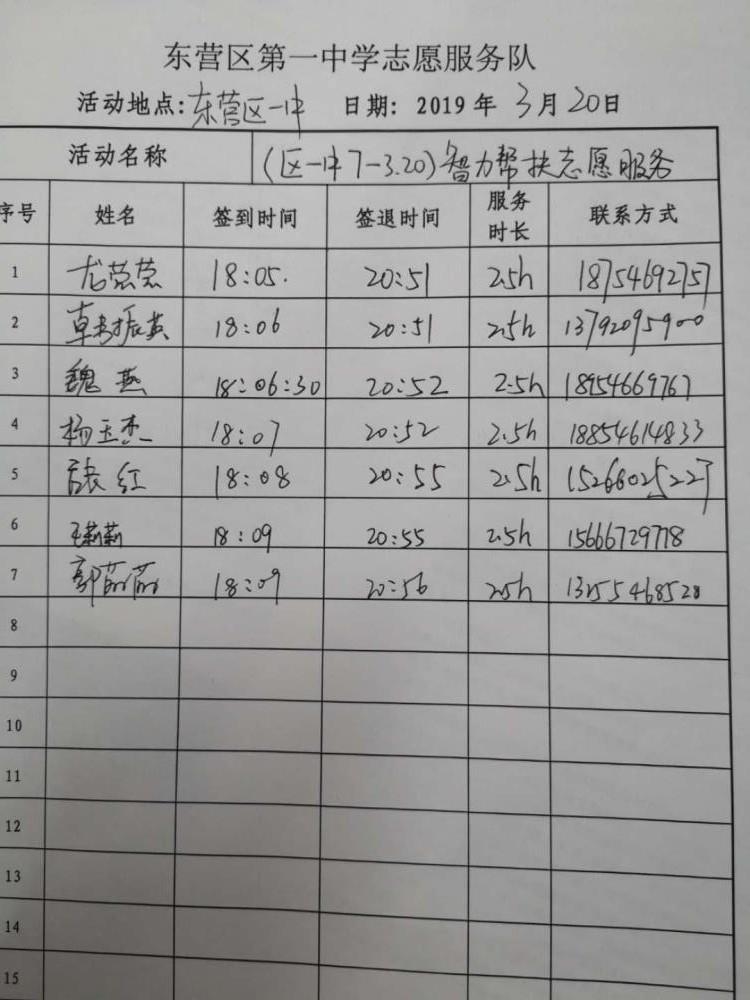 东营区第一中学志愿服务队
活动地点:东营区一中 日期: 2019年3月20日
活动名称 (区一中7-3.20)智力帮扶志愿服务
序号 姓名 签到时间 签退时间 服务时长 联系方式
1 尤芸芸 18:05. 20:51 2.5h 18754692757
2 振英 18:06 20:51 2.5h 13792095900
3 魏燕 18:06:30 20:52 2.5h 18954669767
4 杨玉杰 18:07 20:52 2.5h 18854614833
5 张红 18:08 20:55 2.5h 15266025227
6 王莉莉 18:09 20:55 2.5h 15666729778
7 郭 18:09 20:56 2.5h 13255468528
8
9
10
11
12
13
14
15